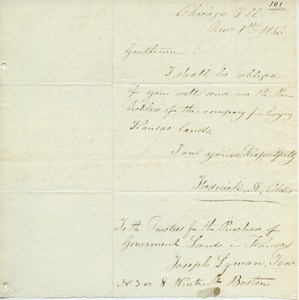 101
Chicago Ill
Nov 8th 1856
Gentlemen
I shall be obliged
if you will send me the Par-
ticulars of the company for buying
Kansas lands.
I am yours Respectfully
Frederick
To the Trustees for the Purchase of
Government Land in Kansas
Joseph Lyman,
No 3 Winter St Boston